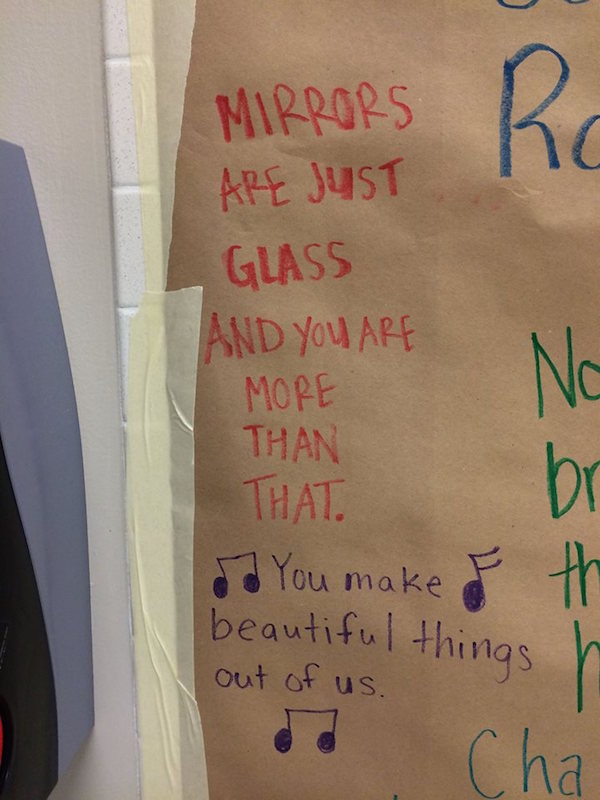 MIRRORS
ARE JUST
GLASS
AND YOU ARE
MORE
THAN
THAT.
You make
beautiful things
out of us.
Ro
No
br
th
h
Cha